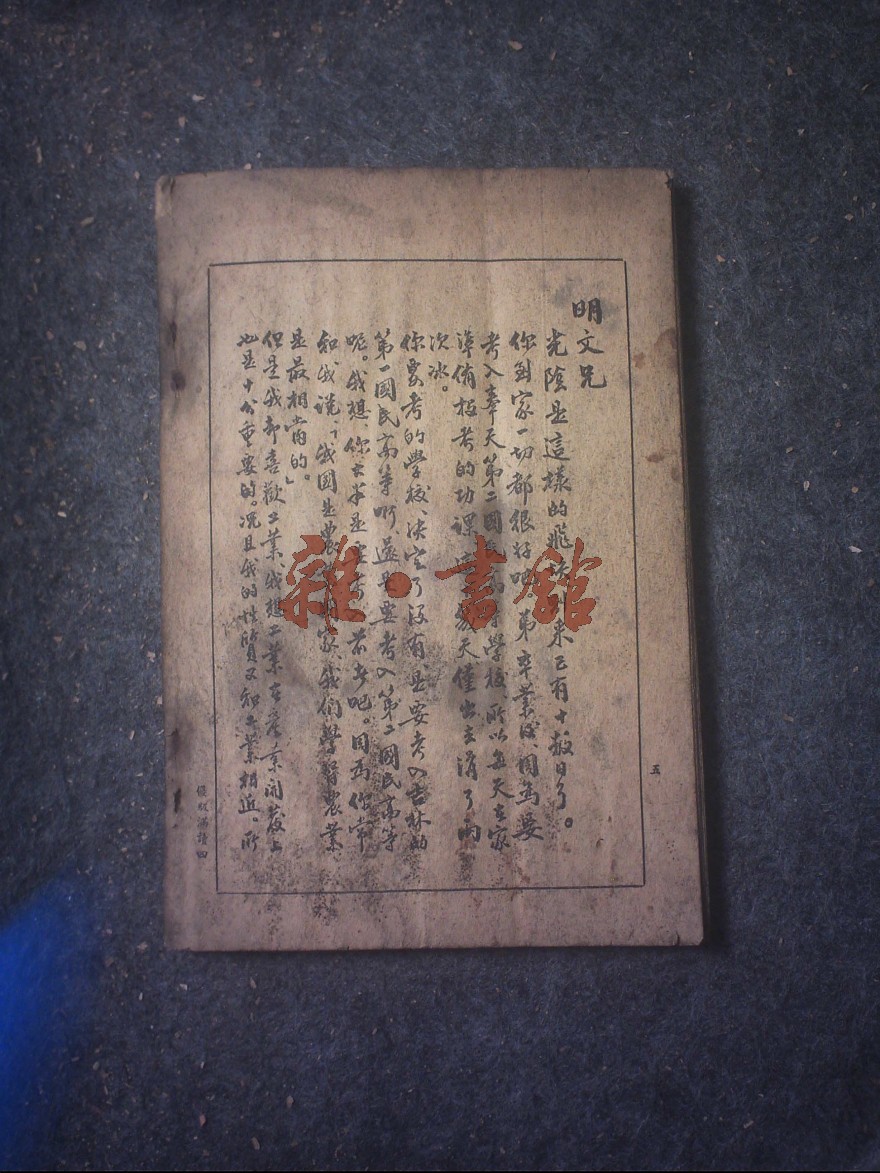 明文兄
光陰是這樣的飛 來已有十數日了。
你到家一切都很好吧 弟卒業後、因為要
考入奉天第二國 高等學校、所以每天在家
準備投考的功課 幾天僅出去滑了兩
次冰。
你要考的學校、決定了沒有、是要考入吉林的
第一國民高等呀、還是要考入第二國民高等
呢。我想、你大半是要 考吧。因為你常
和我說、「我國是農 國家、我們學習農業、
是最相當的。」
但是我卻喜歡工業、我想工業在產業開發上
也是十分重要的。況且我的性質又和工業相近。所
五
優級滿語四
雜・書館